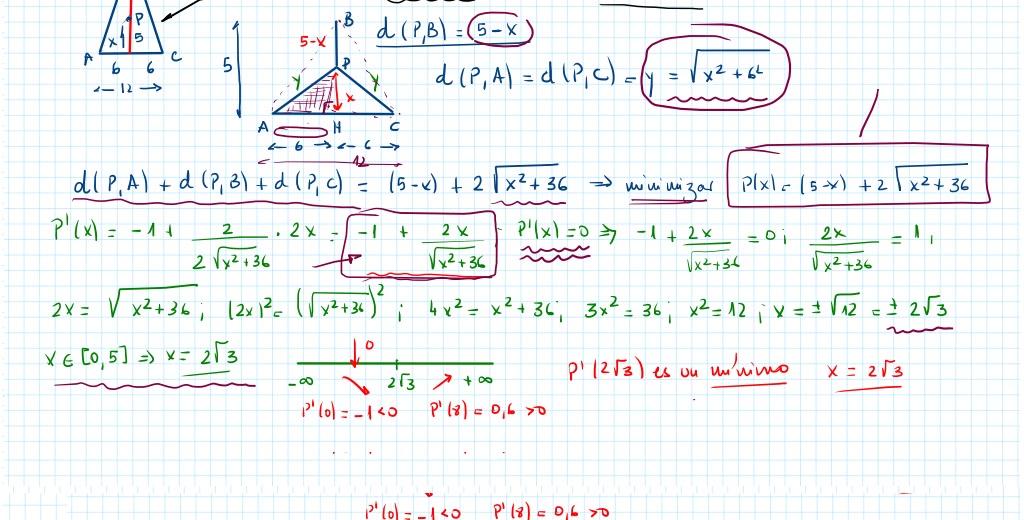 P
x 5
A C
6 6
← 12 →
B
5-x
5
P
y y
x
A H C
← 6 → ← 6 →
12
d(P,B) = 5-x
d(P,A) = d(P,C) = y = √(x² + 6²)
d(P,A) + d(P,B) + d(P,C) = (5-x) + 2√(x²+36) ⇒ minimizar P(x) = (5-x) + 2√(x²+36)
P'(x) = -1 + 2/(2√(x²+36)) · 2x = -1 + 2x/√(x²+36) P'(x)=0 ⇒ -1 + 2x/√(x²+36) = 0; 2x/√(x²+36) = 1;
2x = √(x²+36); (2x)² = (√(x²+36))²; 4x² = x²+36; 3x² = 36; x² = 12; x = ±√12 = ± 2√3
x ∈ [0,5] ⇒ x = 2√3
0
-∞ 2√3 +∞
P'(0) = -1 < 0 P'(8) = 0,6 > 0
P'(2√3) es un mínimo x = 2√3
P'(0) = -1 < 0 P'(8) = 0,6 > 0